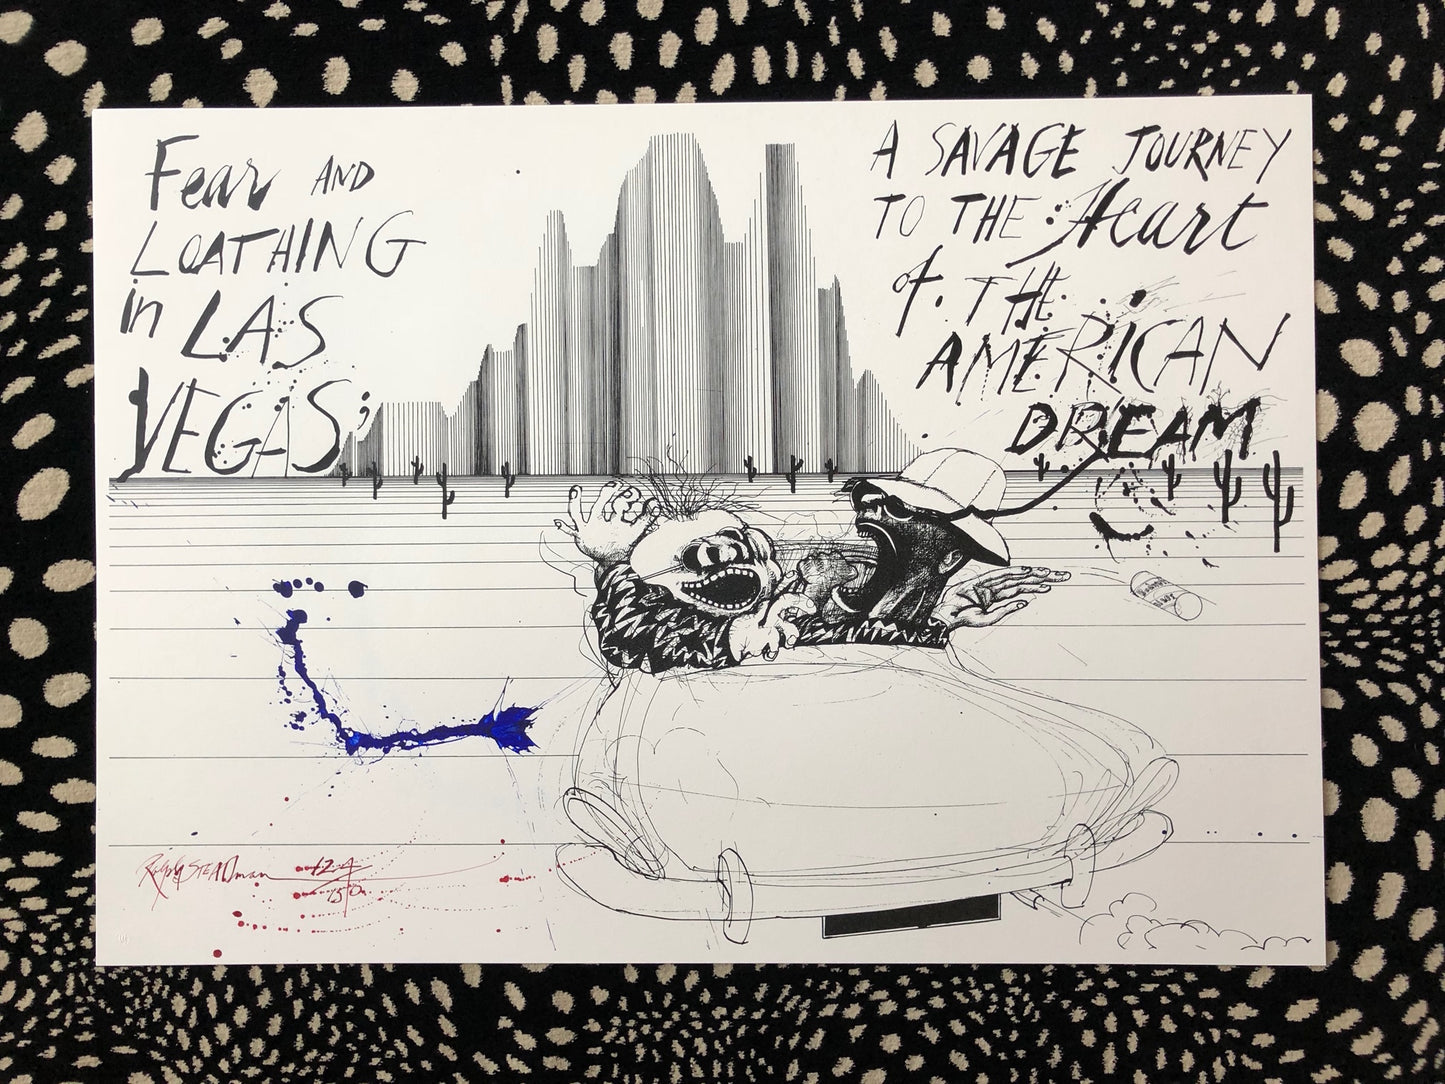 Fear AND
LOATHING
in LAS
VEGAS;
A SAVAGE JOURNEY
TO THE Heart
of. THE
AMERICAN
DREAM
Ralph STEADman 124
150